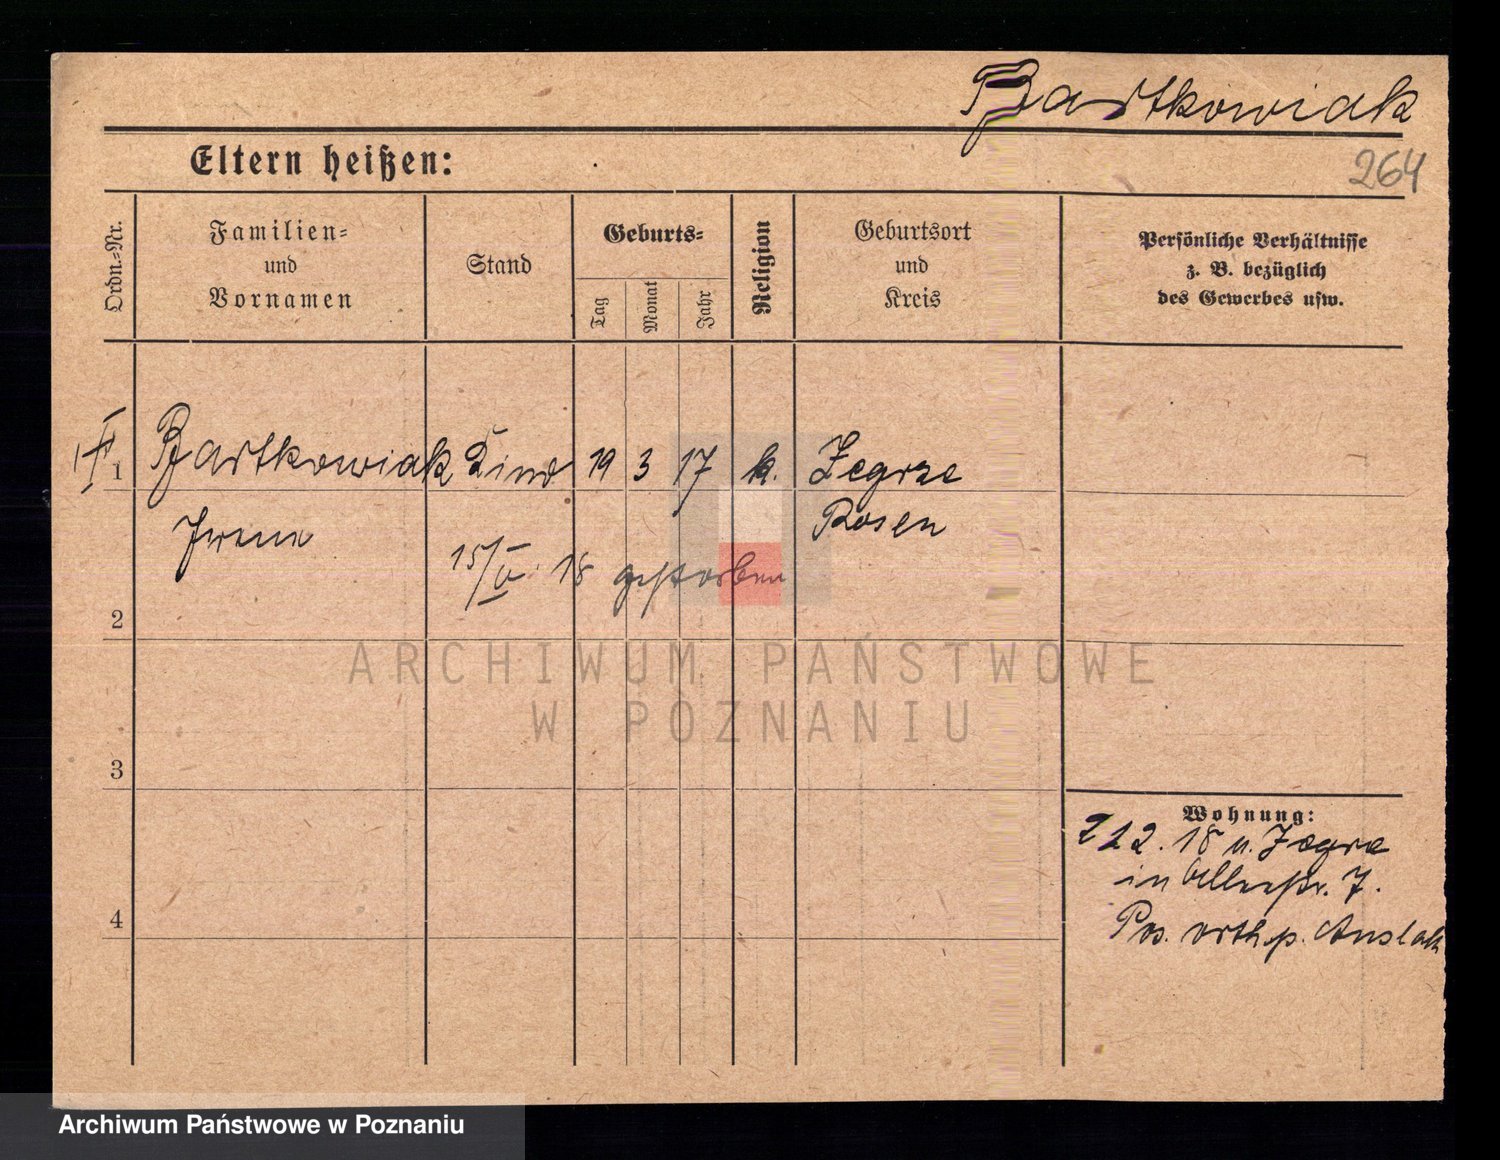 Bartkowiak
Eltern heißen:
264
Ordn.-Nr.
Familien-
und
Vornamen
Stand
Geburts-
Tag
Monat
Jahr
Religion
Geburtsort
und
Kreis
Persönliche Verhältnisse
z. B. bezüglich
des Gewerbes usw.
1 Bartkowiak Kind 19 3 17 k. Zegrze
Irene Posen
15/IV 18 gestorben
2
3
4
Wohnung:
212. 18 n. Zegrze
in 7.
Pos. orthop. Anstalt
ARCHIWUM PAŃSTWOWE
W POZNANIU
Archiwum Państwowe w Poznaniu